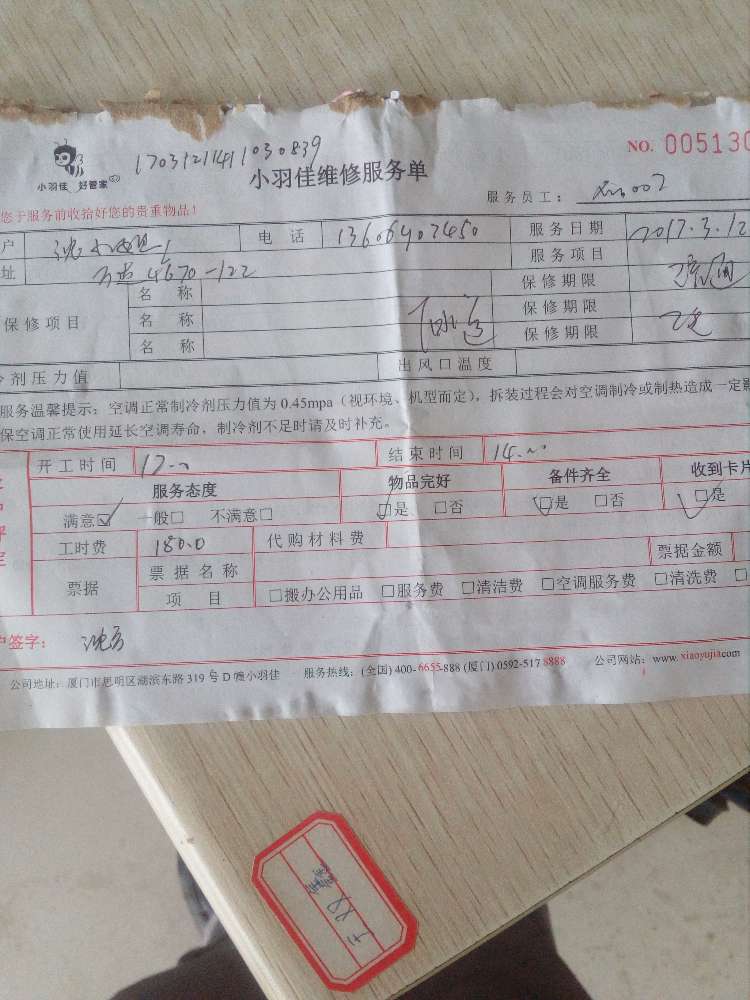 1703121411030839
NO. 005130
小羽佳 好管家
小羽佳维修服务单
服务员工： xm002
您于服务前收拾好您的贵重物品！
户 电话 13606907450 服务日期 2017.3.12
址 4670-122 服务项目
保修项目 名称 保修期限
名称 保修期限
名称 保修期限
冷剂压力值 出风口温度
服务温馨提示：空调正常制冷剂压力值为0.45mpa（视环境、机型而定），拆装过程会对空调制冷或制热造成一定影
保空调正常使用延长空调寿命，制冷剂不足时请及时补充。
开工时间 结束时间
服务态度 物品完好 备件齐全 收到卡片
满意☑ 一般□ 不满意□ ☑是 □否 ☑是 □否 ☑是
工时费 180.0 代购材料费
票据 票据名称 票据金额
项目 □搬办公用品 □服务费 □清洁费 □空调服务费 □清洗费 □
户签字：
公司地址：厦门市思明区湖滨东路319号D幢小羽佳 服务热线：(全国)400-6655-888 (厦门)0592-5178888 公司网站：www.xiaoyujia.com